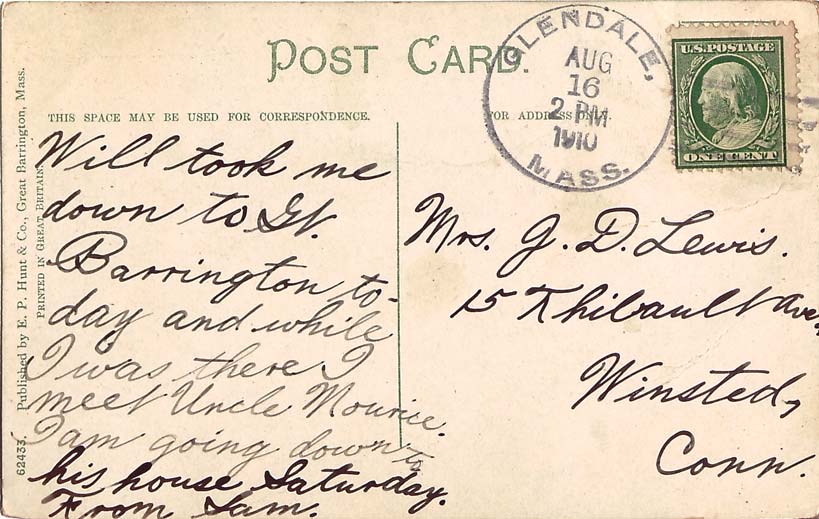 POST CARD.
GLENDALE,
AUG
16
2 PM
1910
MASS.
U.S. POSTAGE
ONE CENT
THIS SPACE MAY BE USED FOR CORRESPONDENCE.
FOR ADDRESS ONLY.
Will took me
down to Gt.
Barrington to-
day and while
I was there I
meet Uncle Mourice.
I am going down to
his house Saturday.
From Sam.
Mrs. J. D. Lewis.
15 Thibault Ave,
Winsted,
Conn.
62433. Published by E. P. Hunt & Co., Great Barrington, Mass.
PRINTED IN GREAT BRITAIN